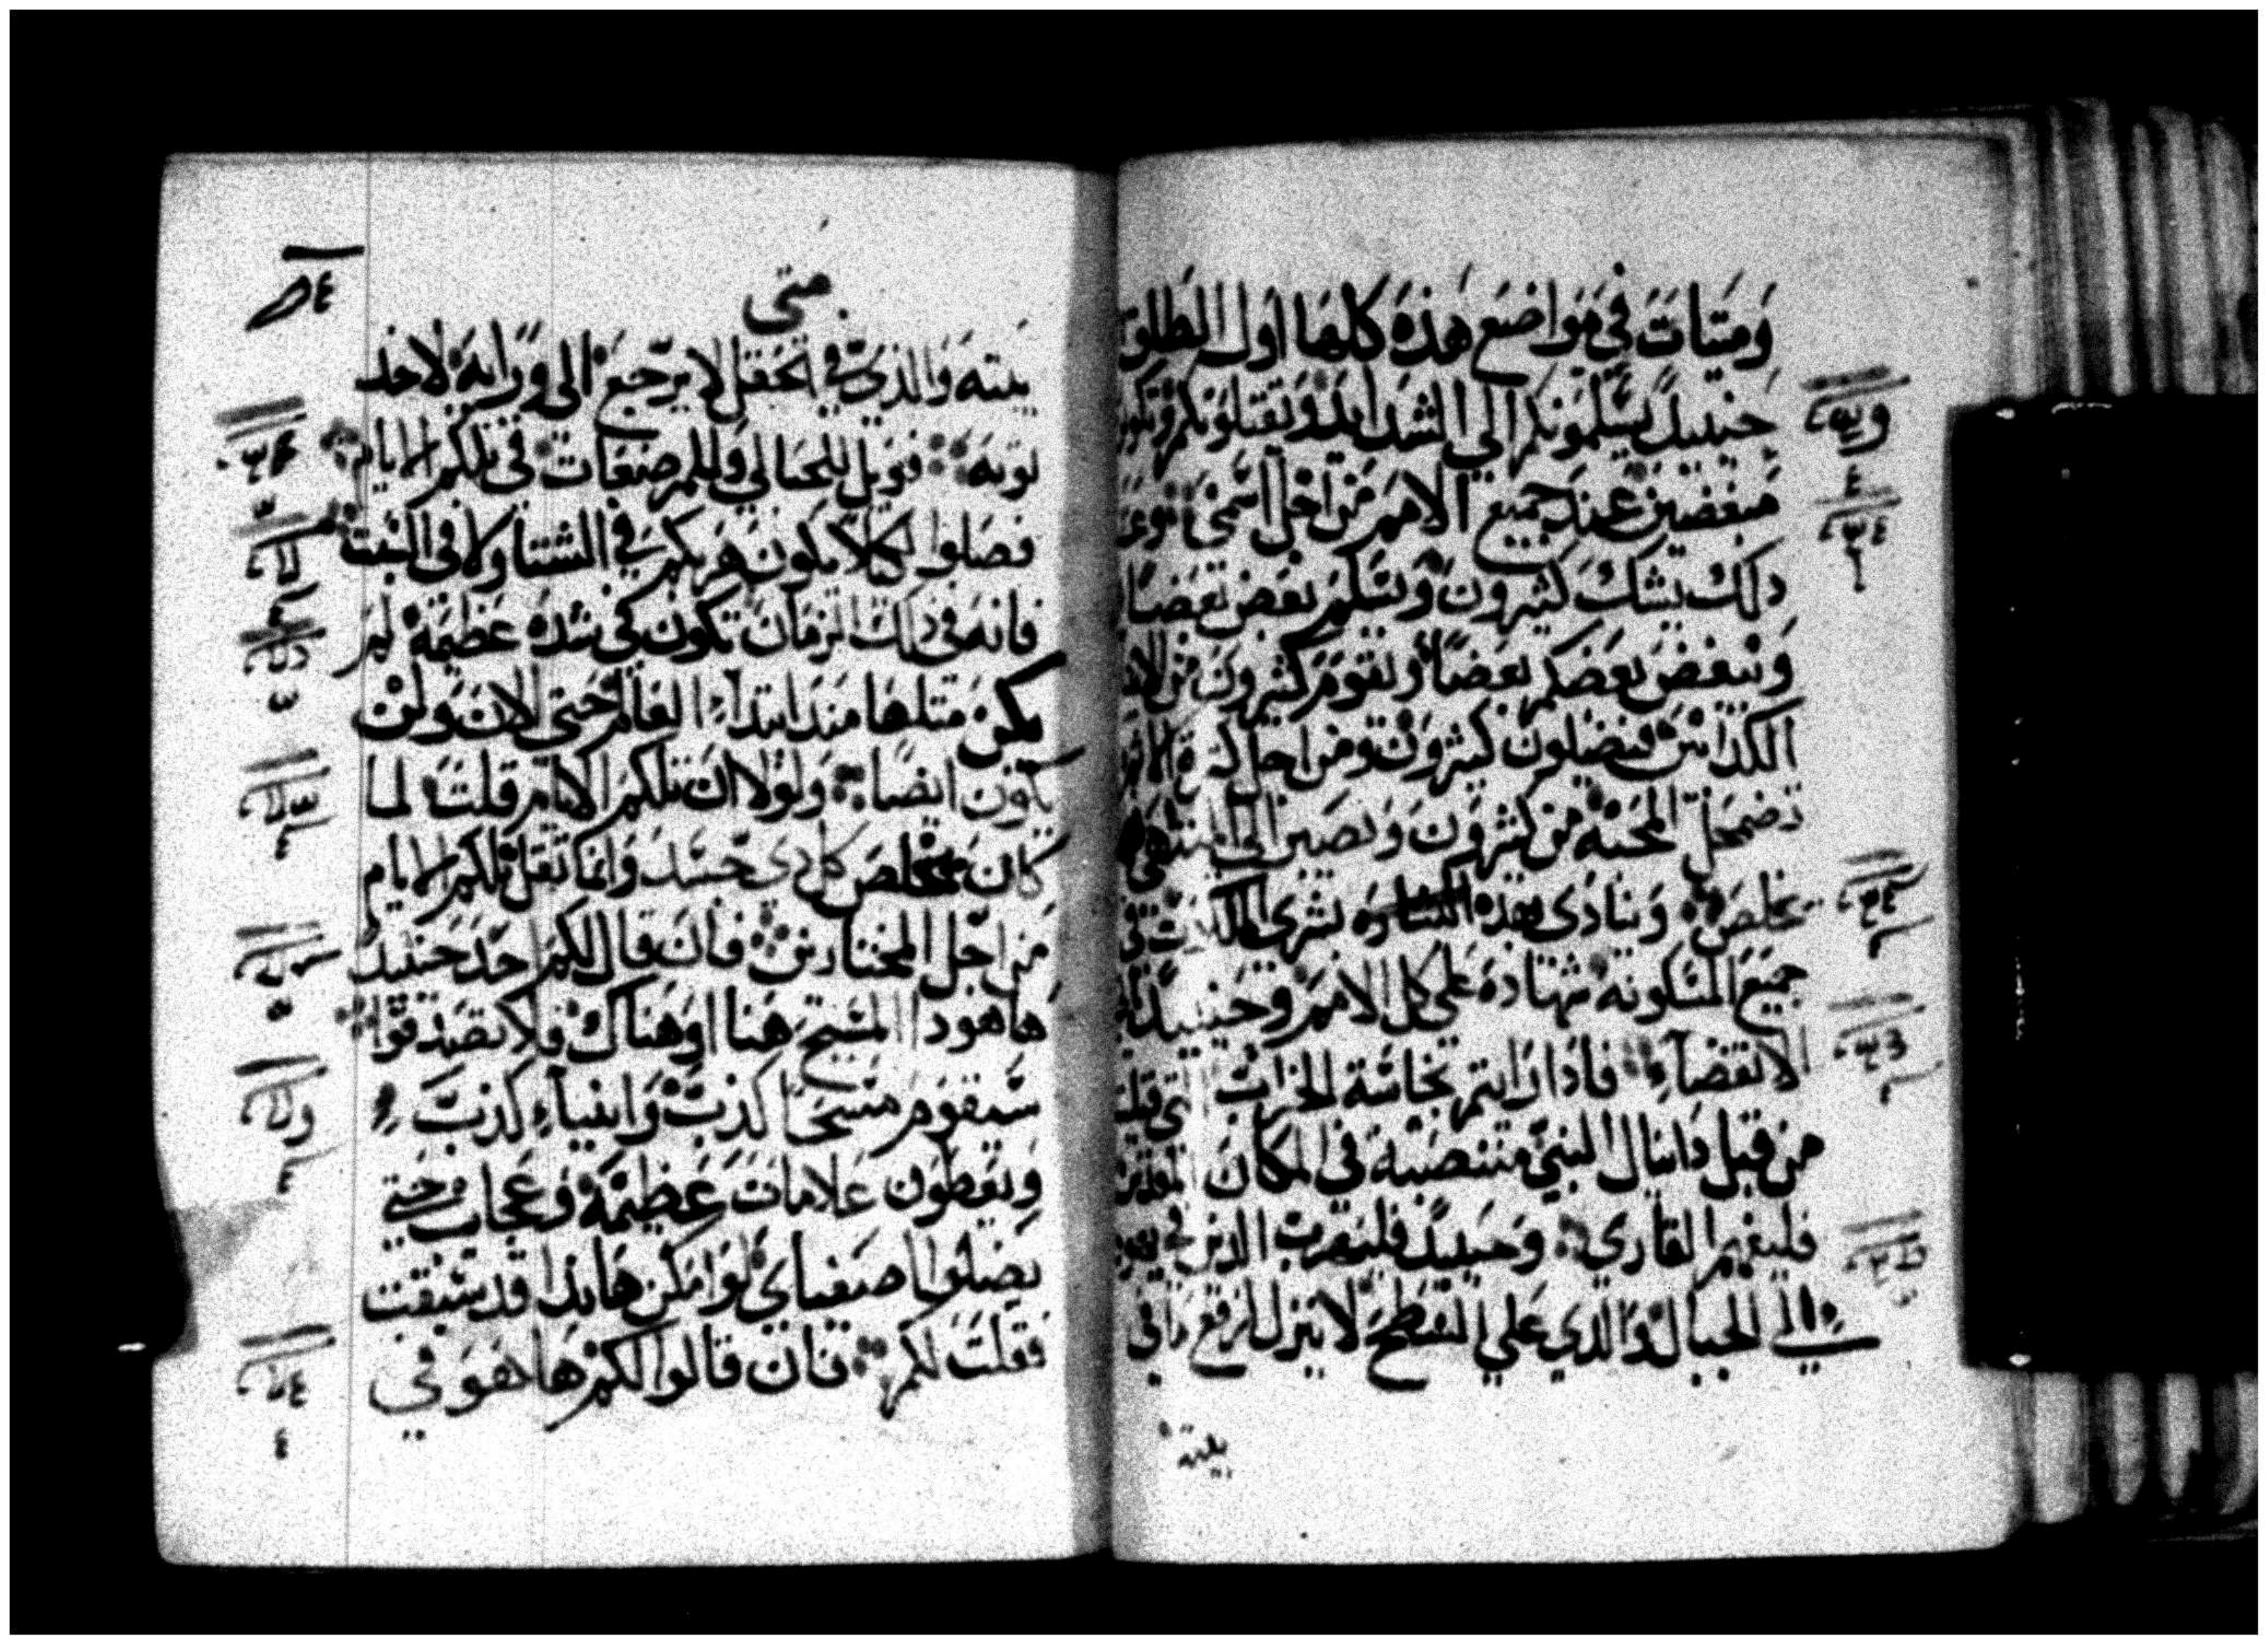 ومتات في مواضع هذه كلها اول الطلق
حينيدً يسلمونكم الي الشدايد ويقتلونكم وتكون
مبغضين عند جميع الامم من اجل اسمي
دلك يشك كثيرون ويسلم بعض بعضًا
ويبغض بعضكم بعضًا ويقوم كثيرون من الانبيا
الكدابين فيضلون كثيرون ومن اجل كثرة الاثم
تضمحل المحبه من كثيرون ويصبر الي المنتهي
يخلص وينادى بهذه البشاره بشرى الملكوت في
جميع المسكونه شهاده على كل الامم وحينيدًا
الانقضآء فادا رايتم نجاسة الخراب التي قيلت
من قبل دانيال النبي منتصبه في المكان المقدس
فليفهم القاري وحينيدً فليهرب الدين في يهودا
الي الجبال والدي على السطح لا ينزل لرفع مافي
بيته
متى
بيته والذى في الحقل لا يرجع الى ورايه لاخد
ثوبه فويل للحبالي وللمرضعات في تلكم الايام
فصلوا لكيلا يكون هربكم في الشتا ولا في السبت
فانه في دلك الزمان تكون في شده عظيمه لم
يكن متلها مند ابتدآء العالم حتى الان ولن
يكون ايضا ولولا ان تلكم الايام قلت لما
كان يخلص كل دى جسد وانما تقل تلكم الايام
من اجل المختارين فان قال لكم احد حينيد
هاهودا المسيح هنا او هناك فلا تصدقوا
سيقوم مسحا كذبة وانبياء كذبة
ويعطون علامات عظيمة وعجايب حتى
يضلوا اصفياي لو امكن هانذا قد سبقت
فقلت لكم فان قالوا لكم ها هو في